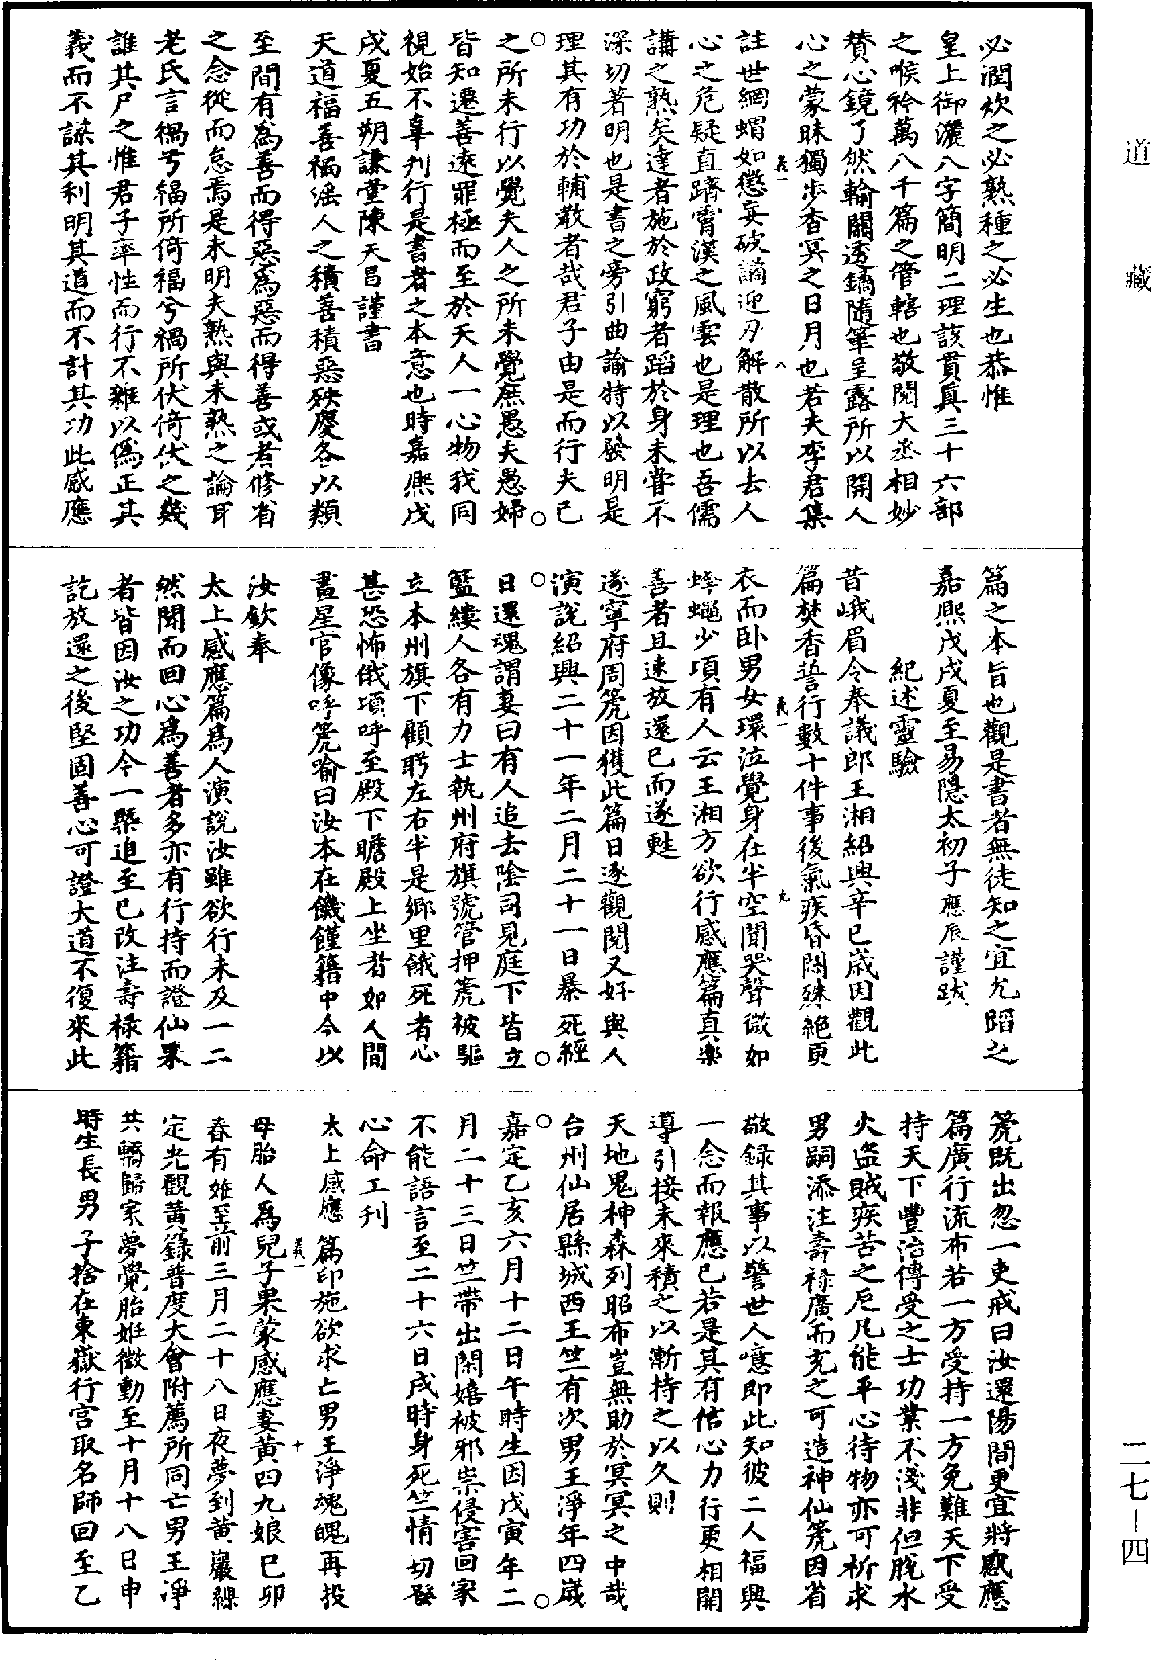 必潤炊之必熟種之必生也恭惟
皇上御灑八字簡明二理該貫真三十六部
之喉衿萬八千篇之管轄也敬閱大丞相妙
賛心鏡了然輪關透鑰隨筆呈露所以開人
心之蒙昧獨步杳冥之日月也若夫李君集
註世網蝟如懲妄砭譎迎刃解散所以去人
心之危疑直躋霄漢之風雲也是理也吾儒
講之熟矣達者施於政窮者蹈於身未嘗不
深切著明也是書之旁引曲諭特以發明是
理其有功於輔教者哉君子由是而行夫已
之所未行以覺夫人之所未覺庶愚夫愚婦
皆知遷善遠罪極而至於天人一心物我同
視始不辜刋行是書者之本意也時嘉熈戊
戌夏五朔謙堂陳天昌謹書
天道福善禍滛人之積善積惡殃慶各以類
至間有為善而得惡為惡而得善或者修省
之念從而怠焉是未明夫熟與未熟之論耳
老氏言禍兮福所倚福兮禍所伏倚伏之幾
誰其尸之惟君子率性而行不雜以僞正其
義而不謀其利明其道而不計其功此感應
篇之本旨也觀是書者無徒知之宜尤蹈之
嘉熈戊戌夏至易隱太初子應辰謹跋
紀述靈驗
昔峨眉令奉議郎王湘紹興辛已歲因觀此
篇焚香誓行數十件事後氣疾昏悶殊絕更
衣而卧男女環泣覺身在半空聞哭聲微如
蜂蠅少項有人云王湘方欲行感應篇真樂
善者且速放還已而遂甦
遂寧府周篪因獲此篇日逐觀閱又好與人
演說紹興二十一年二月二十一日暴死經
日還魂謂妻曰有人追去陰司見庭下皆立
籃縷人各有力士執州府旗號管押篪被驅
立本州旗下顧眄左右半是鄉里餓死者心
甚恐怖俄項呼至殿下瞻殿上坐者如人間
畫星官像呼篪喻曰汝本在饑饉籍中今以
汝欽奉
太上感應篇為人演說汝雖欲行未及一二
然聞而回心為善者多亦有行持而證仙果
者皆因汝之功今一槩追至已改注壽祿籍
訖放還之後堅固善心可證大道不復來此
篪既出忽一吏戒曰汝還陽間更宜將感應
篇廣行流布若一方受持一方免難天下受
持天下豐治傳受之士功業不淺非但脫水
火盜賊疾苦之厄凡能平心待物亦可祈求
男嗣添注壽祿廣而充之可造神仙篪因省
敬錄其事以警世人噫即此知彼二人福興
一念而報應已若是其有信心力行更相開
導引接未來積之以漸持之以久則
天地鬼神森列昭布豈無助於冥冥之中哉
台州仙居縣城西王竺有次男王淨年四歲
嘉定乙亥六月十二日午時生因戊寅年二
月二十三日竺帶出閑嬉被邪祟侵害回家
不能語言至二十六日戌時身死竺情切發
心命工刋
太上感應篇印施欲求亡男王淨魂魄再投
母胎人為兒子果蒙感應妻黃四九娘已卯
春有姙至前三月二十八日夜夢到黃巖縣
定光觀黃錄普度大會附薦所同亡男王淨
共轎歸家夢覺胎姙微動至十月十八日申
時生長男子捨在東嶽行宫取名師回至乙
義一
八
義一
九
義一
十
道
藏
二七-四